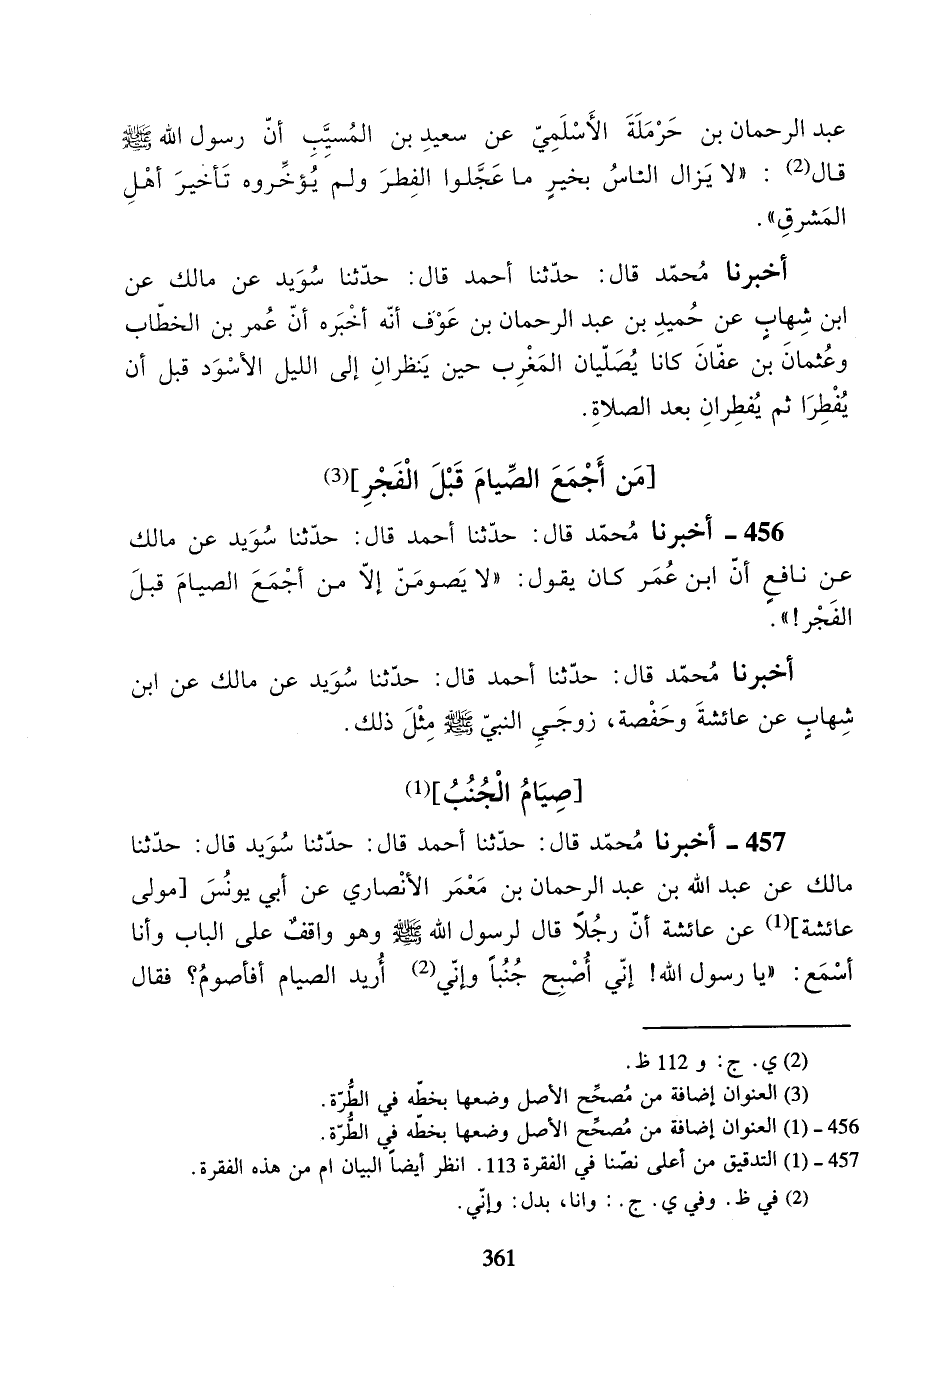 عبد الرحمان بن حَرْمَلَةَ الأَسْلَمِيّ عن سعيدِ بن المُسيَّبِ أنّ رسول الله ﷺ
قال(2) : «لا يَزال الناسُ بخيرٍ ما عَجَّلوا الفِطرَ ولم يُؤخِّروه تَأخيرَ أهْلِ
المَشرقِ».
أخبرنا مُحمّد قال: حدّثنا أحمد قال: حدّثنا سُوَيد عن مالك عن
ابن شِهابٍ عن حُميدِ بن عبد الرحمان بن عَوْف أنّه أخْبَره أنّ عُمر بن الخطّاب
وعُثمانَ بن عفّانَ كانا يُصَلّيان المَغْرِب حين يَنظرانِ إلى الليل الأسْوَد قبل أن
يُفْطِرَا ثم يُفطِرانِ بعد الصلاةِ.
[مَن أَجْمَعَ الصِّيامَ قَبْلَ الْفَجْرِ](3)
456 ـ أخبرنا مُحمّد قال: حدّثنا أحمد قال: حدّثنا سُوَيد عن مالك
عن نافعٍ أنّ ابن عُمَر كان يقول: «لا يَصومَنّ إلاّ من أجْمَعَ الصيامَ قبلَ
الفَجْر!».
أخبرنا مُحمّد قال: حدّثنا أحمد قال: حدّثنا سُوَيد عن مالك عن ابن
شِهابٍ عن عائشةَ وحَفْصة، زوجَيِ النبيّ ﷺ مِثْلَ ذلك.
[صِيَامُ الْجُنُبُ](1)
457 ـ أخبرنا مُحمّد قال: حدّثنا أحمد قال: حدّثنا سُوَيد قال: حدّثنا
مالك عن عبد الله بن عبد الرحمان بن مَعْمَر الأنْصاري عن أبي يونُسَ [مولى
عائشة](1) عن عائشة أنّ رجُلاً قال لرسول الله ﷺ وهو واقفٌ على الباب وأنا
أسْمَع: «يا رسول الله! إنّي أُصْبِح جُنُباً وإنّي(2) أُريد الصيام أفأصومُ؟ فقال
(2) ي. ج: و 112 ظ.
(3) العنوان إضافة من مُصحِّح الأصل وضعها بخطّه في الطُّرّة.
456 ـ (1) العنوان إضافة من مُصحِّح الأصل وضعها بخطّه في الطُّرّة.
457 ـ (1) التدقيق من أعلى نصّنا في الفقرة 113. انظر أيضاً البيان ام من هذه الفقرة.
(2) في ظ. وفي ي. ج.: وانا، بدل: وإنّي.
361